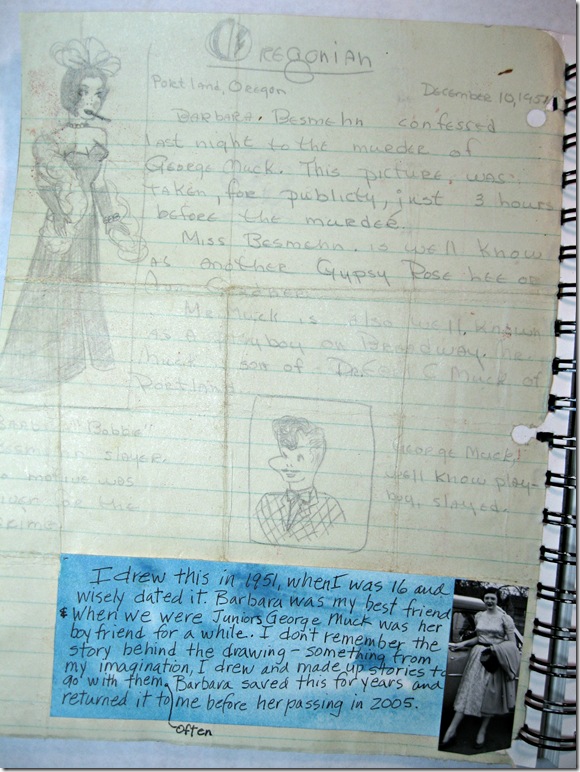 OREGONIAN
Portland, Oregon
December 10, 1951
BARBARA. BESMEHN confessed
last night to the murder of
George Muck. This picture, was
taken, for publicty, just 3 hours
before the murder.
Miss Besmehn. is well know
as another Gypsy Rose Lee or
Mr. Muck is also well known
as a playboy on Broadway. he
son of Dr. Earl C Muck of
Portland
"Bobbe"
slayer.
motive was
for the
George Muck,
well know play-
boy, slayed.
I drew this in 1951, when I was 16 and
wisely dated it. Barbara was my best friend
& when we were Juniors George Muck was her
boyfriend for a while. I don't remember the
story behind the drawing - something from
my imagination, I drew and made up stories to
go with them often. Barbara saved this for years and
returned it to me before her passing in 2005.